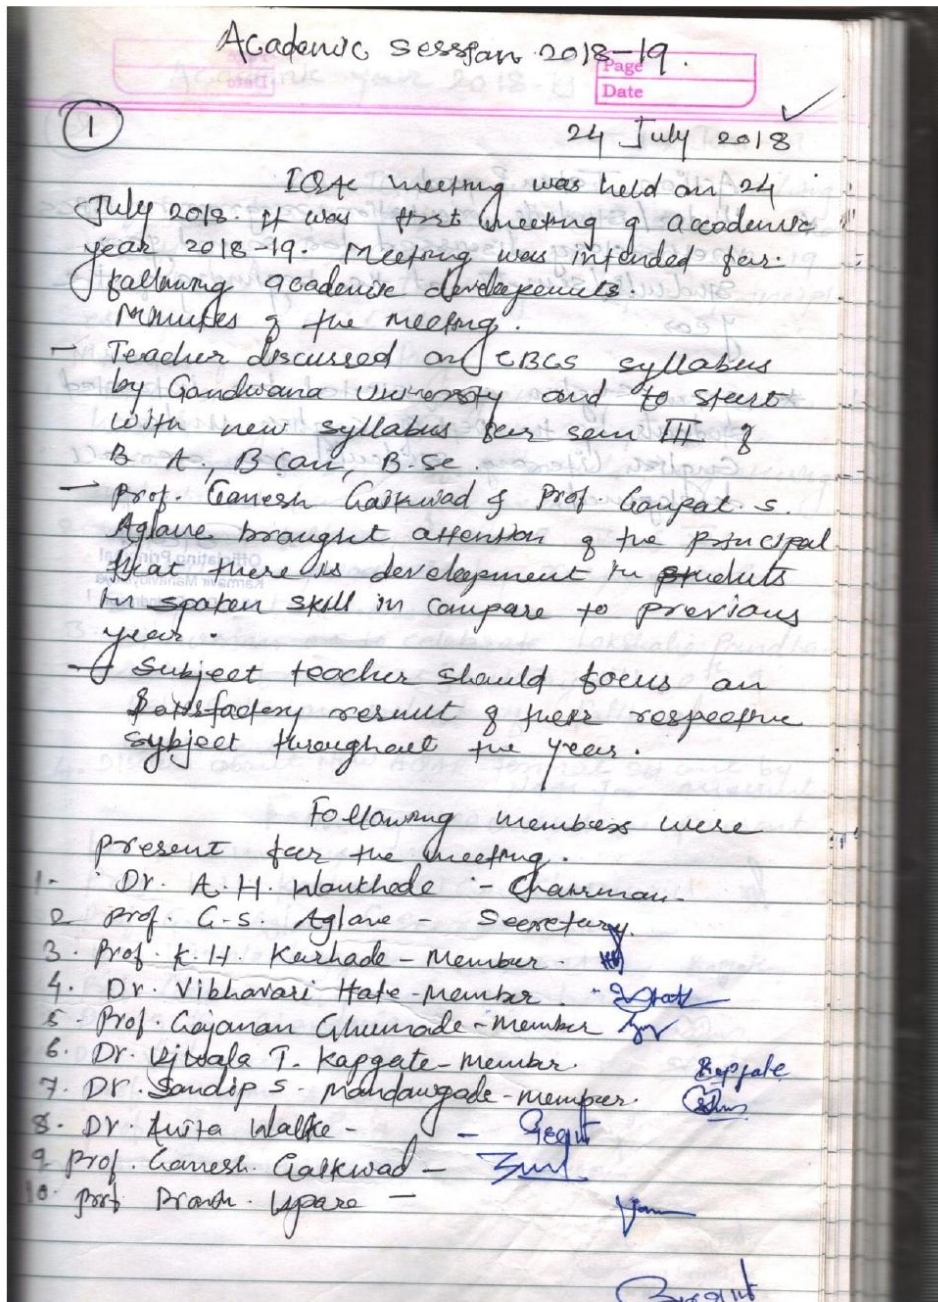 Academic Session 2018-19.
Page
Date
1
24 July 2018
IQAC meeting was held on 24
July 2018. It was first meeting of accademic
year 2018-19. Meeting was intended for
following academic developements.
Minutes of the meeting.
- Teacher discussed on CBCS syllabus
by Gondwana University and to start
with new syllabus for sem III of
B A., B Com, B.Sc.
- Prof. Ganesh Gaikwad & Prof. Ganpat. S.
Aglave brought attention of the principal
that there is development in students
in spoken skill in compare to previous
year.
- Subject teacher should focus on
Satisfactory result of their respective
subject throughout the year.
Following members were
present for the meeting.
1- Dr. A. H. Wankhede - Chairman.
2 Prof. G.S. Aglave - Secretary.
3. Prof. K. H. Karhade - Member.
4. Dr. Vibhavari Hate - Member.
5. Prof. Gajanan Ghumade - member
6. Dr. Ujwala T. Kapgate - Member. Kapgate
7. Dr. Sandip S. Mandavgade - member.
8. Dr. Anita Walke -
9 Prof. Ganesh. Gaikwad -
10. Prof Upare -